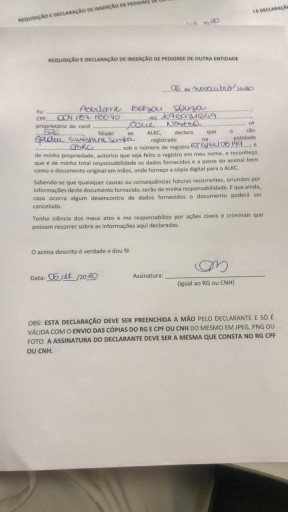 REQUISIÇÃO E DECLARAÇÃO DE INSERÇÃO DE PEDIGREE DE OUTRA
REQUISIÇÃO E DECLARAÇÃO DE INSERÇÃO DE PEDIGREE DE OUTRA ENTIDADE
06 de novembro / 2020
Eu Souza
CPF RG
proprietário do canil nº
filiado ao ALKC, declara que o cão
registrado na entidade
sob o número de registro , é
de minha propriedade, autorizo que seja feito o registro em meu nome, e reconheço
que é de minha total responsabilidade os dados fornecidos e a posse do animal bem
como o documento original em mãos, onde forneço a cópia digital para o ALKC.
Sabendo-se que quaisquer causas ou consequências futuras recorrentes, oriundos por
informações deste documento fornecido, serão de minha responsabilidade. E que ainda,
caso ocorra algum desencontro de dados fornecidos o documento poderá ser
cancelado.
Tenho ciência dos meus atos e me responsabilizo por ações civeis e criminais que
possam recorrer sobre as informações aqui declaradas.
O acima descrito é verdade e dou fé
Data: 06/11 /2020 Assinatura:
(igual ao RG ou CNH)
OBS: ESTA DECLARAÇÃO DEVE SER PREENCHIDA A MÃO PELO DECLARANTE E SÓ É
VÁLIDA COM O ENVIO DAS CÓPIAS DO RG E CPF OU CNH DO MESMO EM JPEG, PNG OU
FOTO. A ASSINATURA DO DECLARANTE DEVE SER A MESMA QUE CONSTA NO RG CPF
OU CNH.